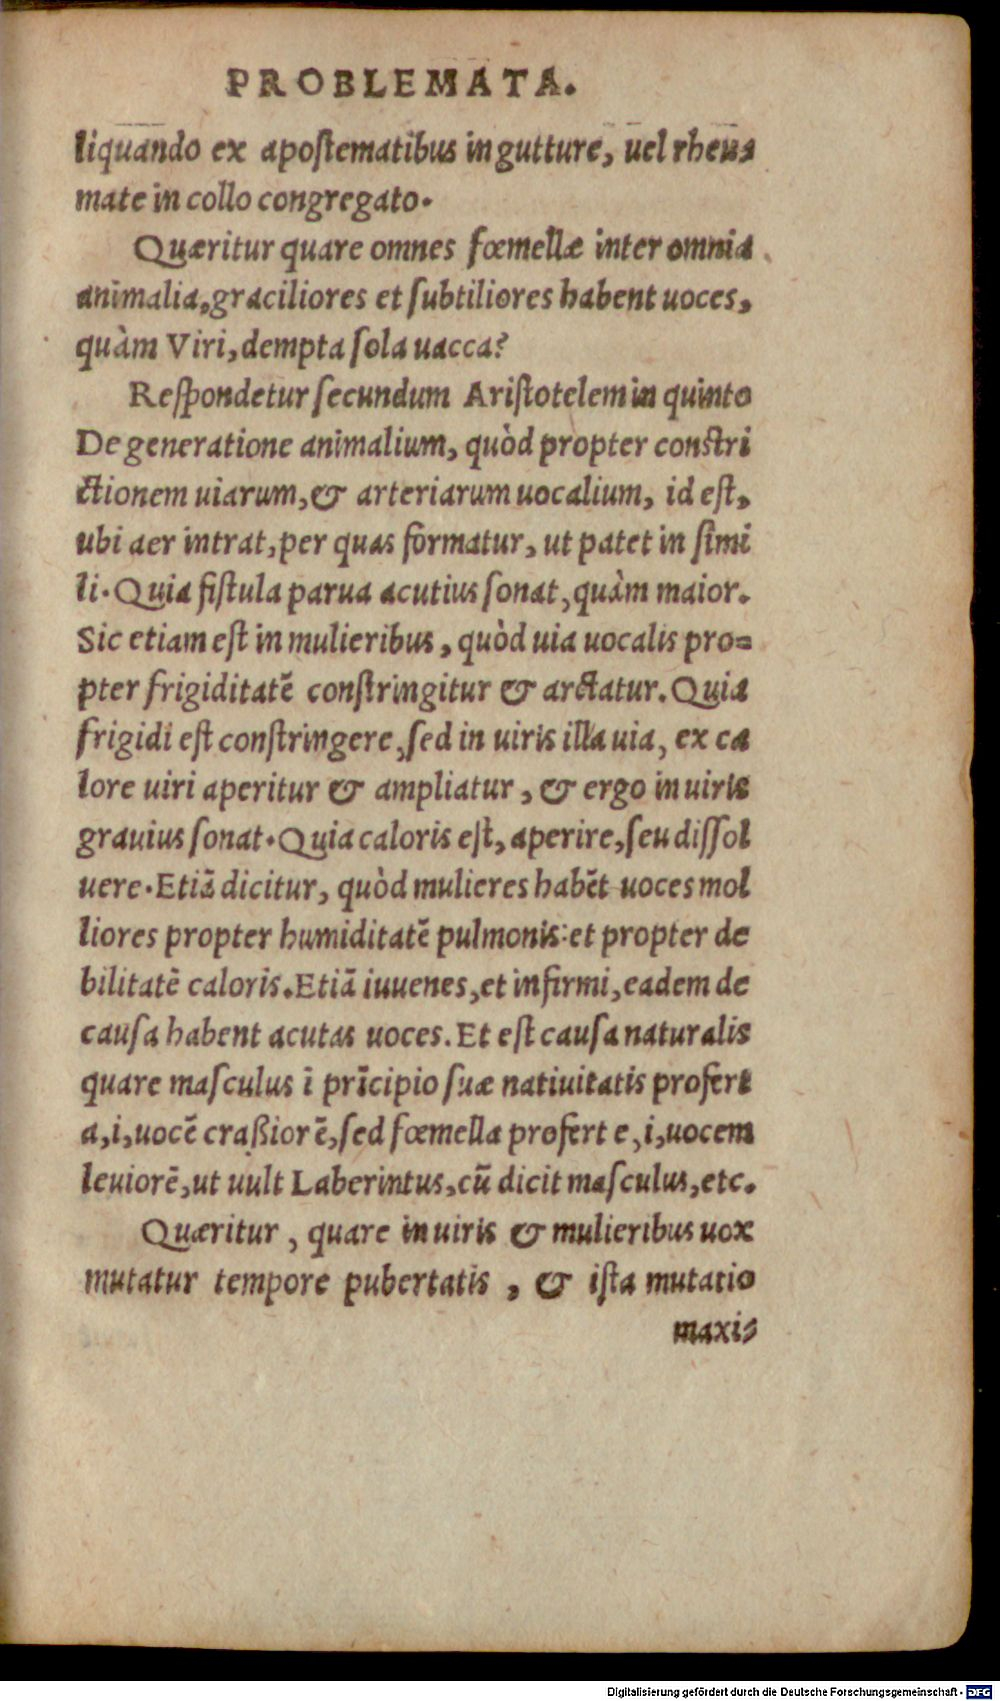 PROBLEMATA.
liquando ex apostematibus in gutture, uel rheu=
mate in collo congregato.
Quæritur quare omnes fœmellæ inter omnia
animalia, graciliores et subtiliores habent uoces,
quàm Viri, dempta sola uacca?
Respondetur secundum Aristotelem in quinto
De generatione animalium, quòd propter constri
ctionem uiarum, & arteriarum uocalium, id est,
ubi aer intrat, per quas formatur, ut patet in simi
li. Quia fistula parua acutius sonat, quàm maior.
Sic etiam est in mulieribus, quòd uia uocalis pro=
pter frigiditatē constringitur & arctatur. Quia
frigidi est constringere, sed in uiris illa uia, ex ca
lore uiri aperitur & ampliatur, & ergo in uiris
grauius sonat. Quia caloris est, aperire, seu dissol
uere. Etiā dicitur, quòd mulieres habēt uoces mol
liores propter humiditatē pulmonis: et propter de
bilitatē caloris. Etiā iuuenes, et infirmi, eadem de
causa habent acutas uoces. Et est causa naturalis
quare masculus ī prīcipio suæ natiuitatis profert
a, i, uocē craßiorē, sed fœmella profert e, i, uocem
leuiorē, ut uult Laberintus, cū dicit masculus, etc.
Quæritur, quare in uiris & mulieribus uox
mutatur tempore pubertatis, & ista mutatio
maxi=
Digitalisierung gefördert durch die Deutsche Forschungsgemeinschaft - DFG